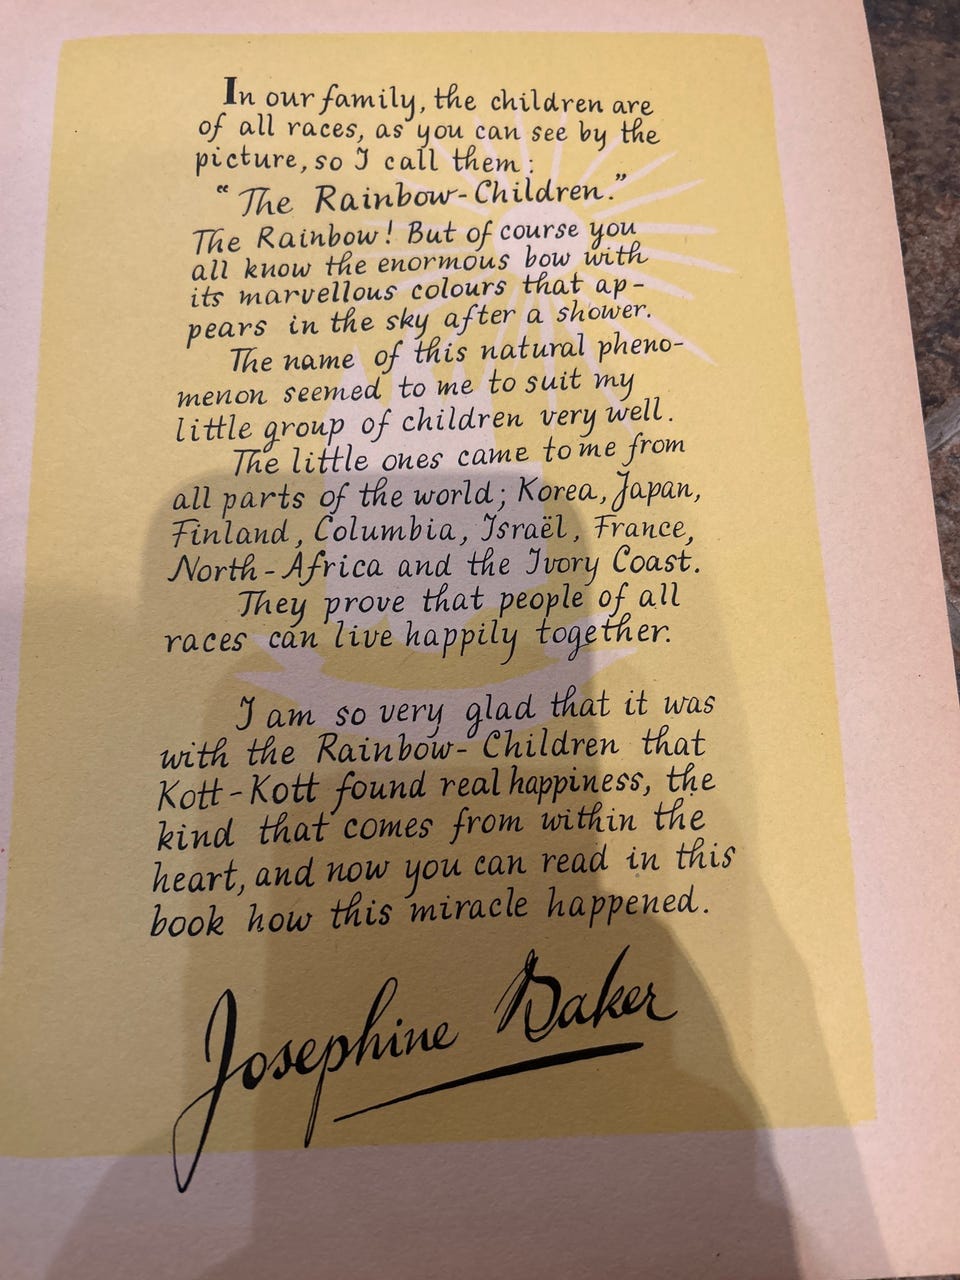 In our family, the children are
of all races, as you can see by the
picture, so I call them:
"The Rainbow-Children."
The Rainbow! But of course you
all know the enormous bow with
its marvellous colours that ap-
pears in the sky after a shower.
The name of this natural pheno-
menon seemed to me to suit my
little group of children very well.
The little ones came to me from
all parts of the world; Korea, Japan,
Finland, Columbia, Israël, France,
North-Africa and the Ivory Coast.
They prove that people of all
races can live happily together.
I am so very glad that it was
with the Rainbow-Children that
Kott-Kott found real happiness, the
kind that comes from within the
heart, and now you can read in this
book how this miracle happened.
Josephine Baker